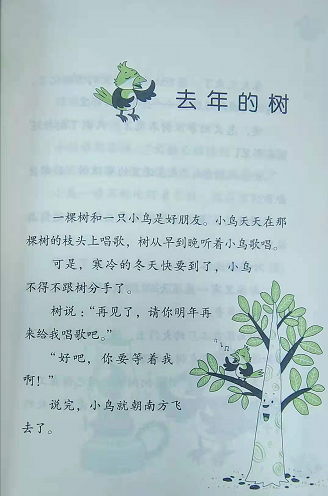 去年的树
一棵树和一只小鸟是好朋友。小鸟天天在那
棵树的枝头上唱歌，树从早到晚听着小鸟歌唱。
可是，寒冷的冬天快要到了，小鸟
不得不跟树分手了。
树说：“再见了，请你明年再
来给我唱歌吧。”
“好吧，你要等着我
啊！”
说完，小鸟就朝南方飞
去了。